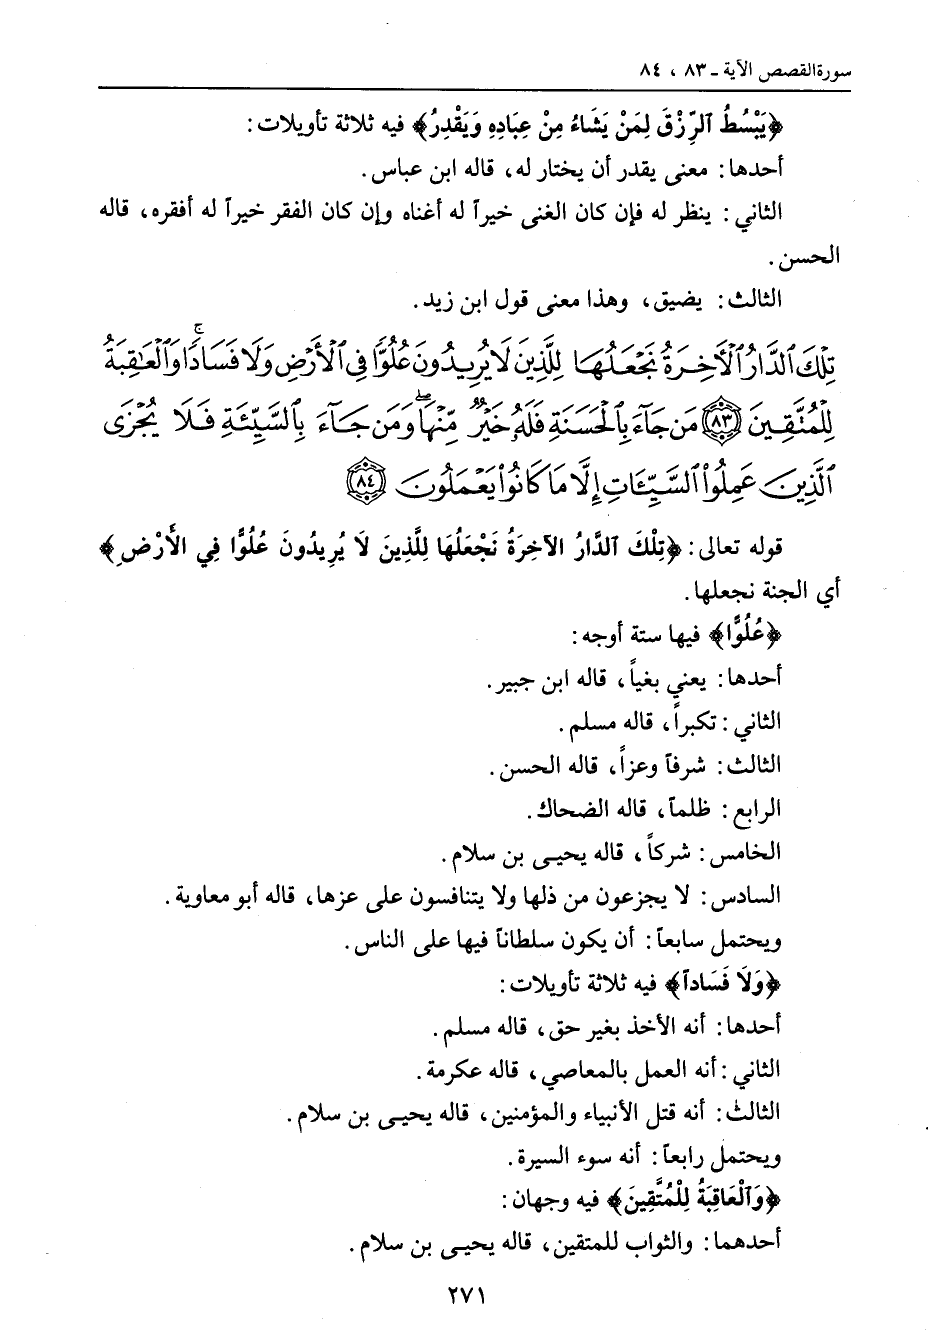 سورة القصص الآية - ٨٣ ، ٨٤
﴿يَبْسُطُ ٱلرِّزْقَ لِمَنْ يَشَاءُ مِنْ عِبَادِهِ وَيَقْدِرُ﴾ فيه ثلاثة تأويلات:
أحدها: معنى يقدر أن يختار له، قاله ابن عباس.
الثاني: ينظر له فإن كان الغنى خيراً له أغناه وإن كان الفقر خيراً له أفقره، قاله
الحسن.
الثالث: يضيق، وهذا معنى قول ابن زيد.
تِلْكَ ٱلدَّارُ ٱلْأَخِرَةُ نَجْعَلُهَا لِلَّذِينَ لَا يُرِيدُونَ عُلُوًّا فِى ٱلْأَرْضِ وَلَا فَسَادًا ۚ وَٱلْعَٰقِبَةُ
لِلْمُتَّقِينَ ﴿٨٣﴾ مَن جَآءَ بِٱلْحَسَنَةِ فَلَهُۥ خَيْرٌ مِّنْهَا ۖ وَمَن جَآءَ بِٱلسَّيِّئَةِ فَلَا يُجْزَى
ٱلَّذِينَ عَمِلُوا۟ ٱلسَّيِّـَٔاتِ إِلَّا مَا كَانُوا۟ يَعْمَلُونَ ﴿٨٤﴾
قوله تعالى: ﴿تِلْكَ ٱلدَّارُ الآخِرَةُ نَجْعَلُهَا لِلَّذِينَ لَا يُرِيدُونَ عُلُوًّا فِي الأَرْضِ﴾
أي الجنة نجعلها.
﴿عُلُوًّا﴾ فيها ستة أوجه:
أحدها: يعني بغياً، قاله ابن جبير.
الثاني: تكبراً، قاله مسلم.
الثالث: شرفاً وعزاً، قاله الحسن.
الرابع: ظلماً، قاله الضحاك.
الخامس: شركاً، قاله يحيى بن سلام.
السادس: لا يجزعون من ذلها ولا يتنافسون على عزها، قاله أبو معاوية.
ويحتمل سابعاً: أن يكون سلطاناً فيها على الناس.
﴿وَلَا فَسَاداً﴾ فيه ثلاثة تأويلات:
أحدها: أنه الأخذ بغير حق، قاله مسلم.
الثاني: أنه العمل بالمعاصي، قاله عكرمة.
الثالث: أنه قتل الأنبياء والمؤمنين، قاله يحيى بن سلام.
ويحتمل رابعاً: أنه سوء السيرة.
﴿وَٱلْعَاقِبَةُ لِلْمُتَّقِينَ﴾ فيه وجهان:
أحدهما: والثواب للمتقين، قاله يحيى بن سلام.
٢٧١